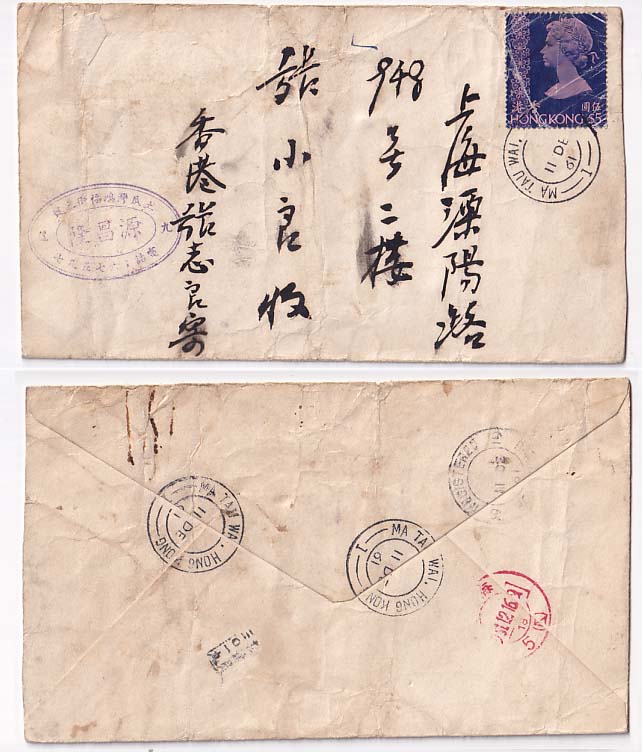 上海溧陽路
948号二樓
張小良收
香港張志良寄
港 香 圓伍
HONG KONG $5
MA TAU WAI.
11 DE
61
1
源昌隆
MA TAU WAI. HONG KONG
11 DE
MA TAU WAI. HONG KON
11 D
61
1